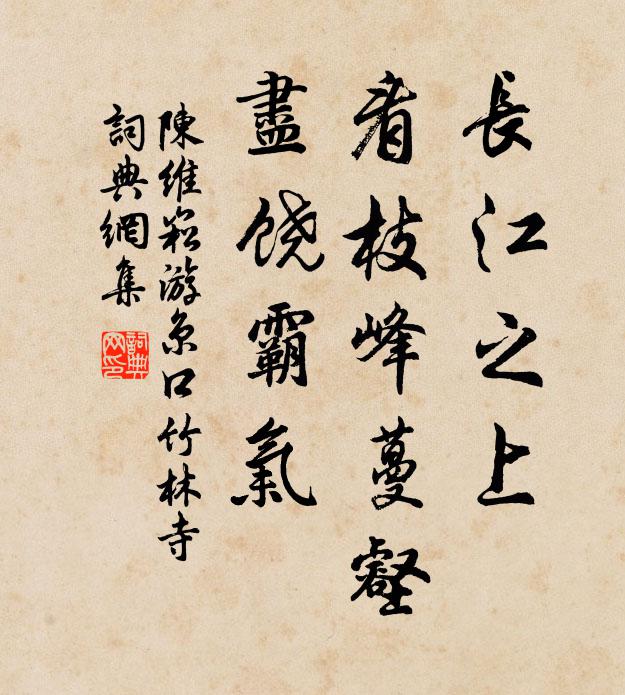 長江之上
看枝峰蔓壑
盡饒霸氣
陳維崧游京口竹林寺
詞典網集
詞典網印